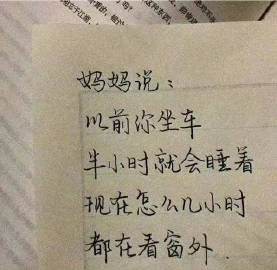 妈妈说：
以前你坐车
半小时就会睡着
现在怎么几小时
都在看窗外.